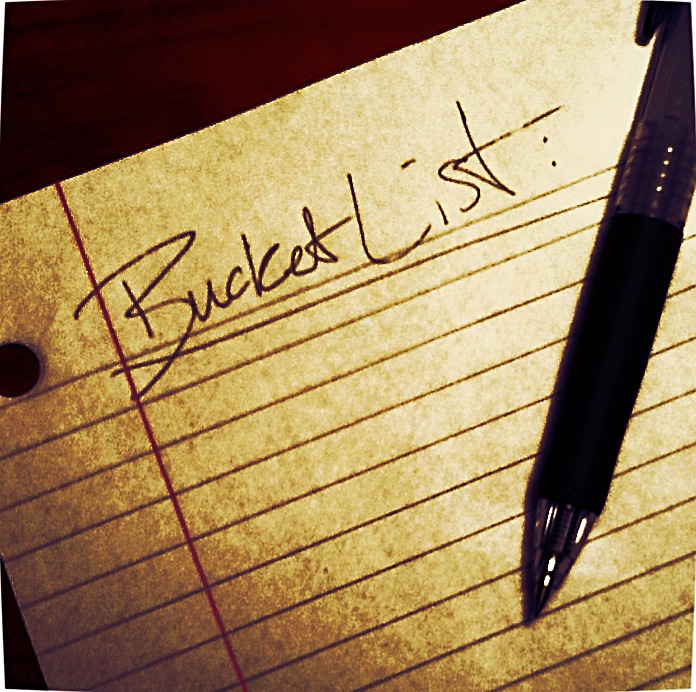 Bucket List: